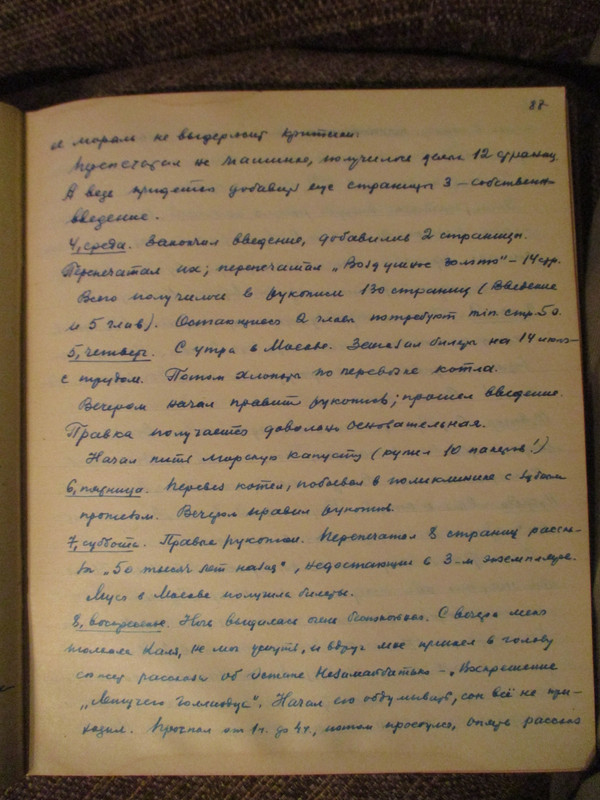 88
и морали не выдержит критики.
Перепечатал на машинке, получилось целых 12 страниц.
А ведь придётся добавить ещё страницы 3 – собственно
введение.
4, среда. Закончил введение, добавились 2 страницы.
Перепечатал их; перепечатал „Воздушное золото“ – 14 стр.
Всего получилось в рукописи 130 страниц (Введение
и 5 глав). Остающиеся 2 главы потребуют min. стр. 50.
5, четверг. С утра в Москве. Заказал билеты на 14 июля –
с трудом. Потом хлопоты по перевозке котла.
Вечером начал править рукопись; прошел введение.
Правка получается довольно основательная.
Начал пить морскую капусту (купил 10 пакетов!)
6, пятница. Перевез котел, побывал в поликлинике с зубным
протезом. Вечером правил рукопись.
7, суббота. Правил рукопись. Перепечатал 8 страниц расска-
за „50 тысяч лет назад“, недостающие в 3-м экземпляре.
Муся в Москве получила билеты.
8, воскресенье. Ночь выдалась очень беспокойная. С вечера меня
Галя, не мог уснуть, и вдруг мне пришел в голову
рассказа об Остапе – „Воскрешение
„Летучего Голландца“. Начал его обдумывать, сон всё не при-
ходил. Проспал от 1 ч. до 4 ч., потом проснулся, опять рассказ